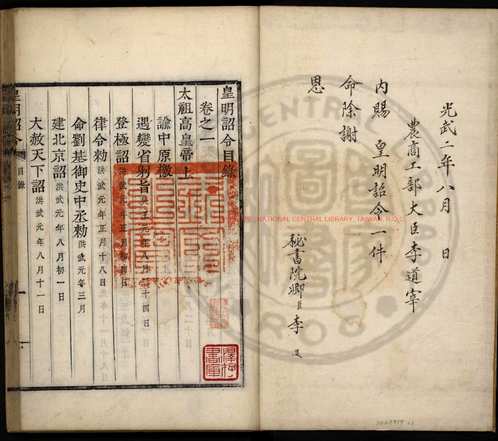 光武二年八月 日
農商工部大臣李道宰
內賜 皇明詔令一件
命除謝
恩
秘書院卿臣李
皇明詔令目錄
卷之一
太祖高皇帝上
諭中原檄
遇變省躬旨
登極詔
律令敕 洪武元年正月十八日
命劉基御史中丞敕 洪武元年三月
建北京詔 洪武元年八月初一日
大赦天下詔 洪武元年八月十一日
皇明詔令
目錄
NATIONAL CENTRAL LIBRARY, TAIWAN, R.O.C.